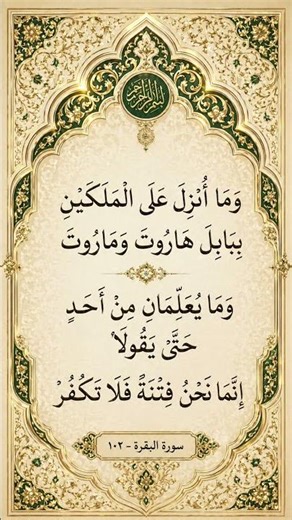 وَمَا أُنْزِلَ عَلَى الْمَلَكَيْنِ
بِبَابِلَ هَارُوتَ وَمَارُوتَ
وَمَا يُعَلِّمَانِ مِنْ أَحَدٍ
حَتَّىٰ يَقُولَا
إِنَّمَا نَحْنُ فِتْنَةٌ فَلَا تَكْفُرْ
سورة البقرة - ١٠٢